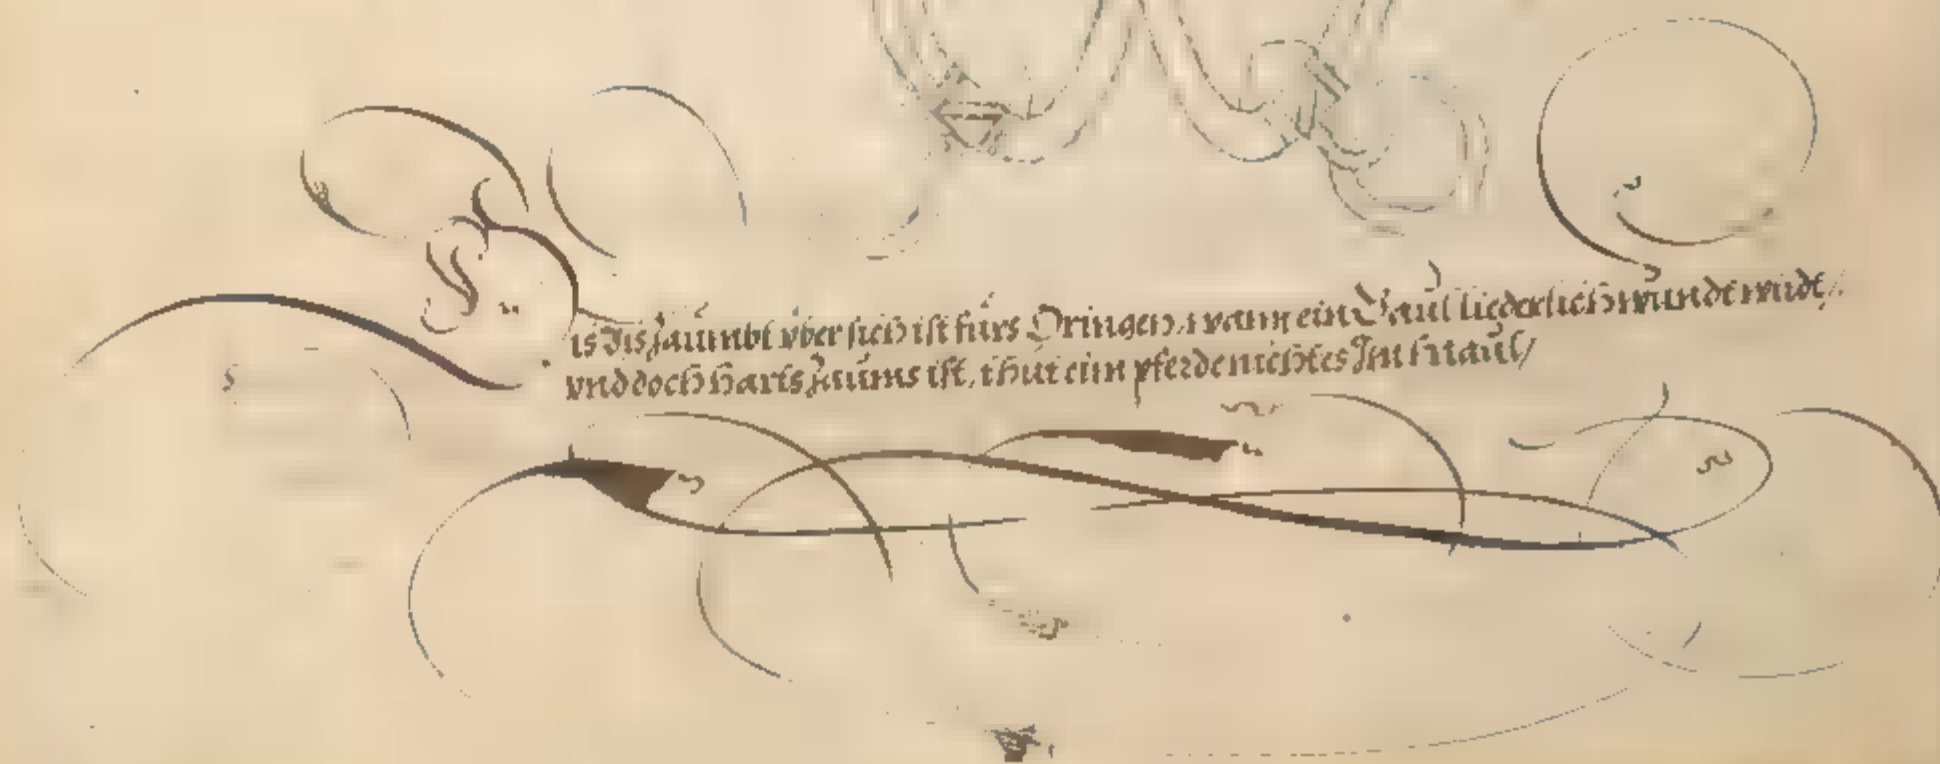 is Jis Zaümbt vber sich ist fürs Dringen, wann ein Gaül liederlich wündt wirdt/
vnd doch harts Zaüms ist, thüt eim pferde nichtes Im Maül/